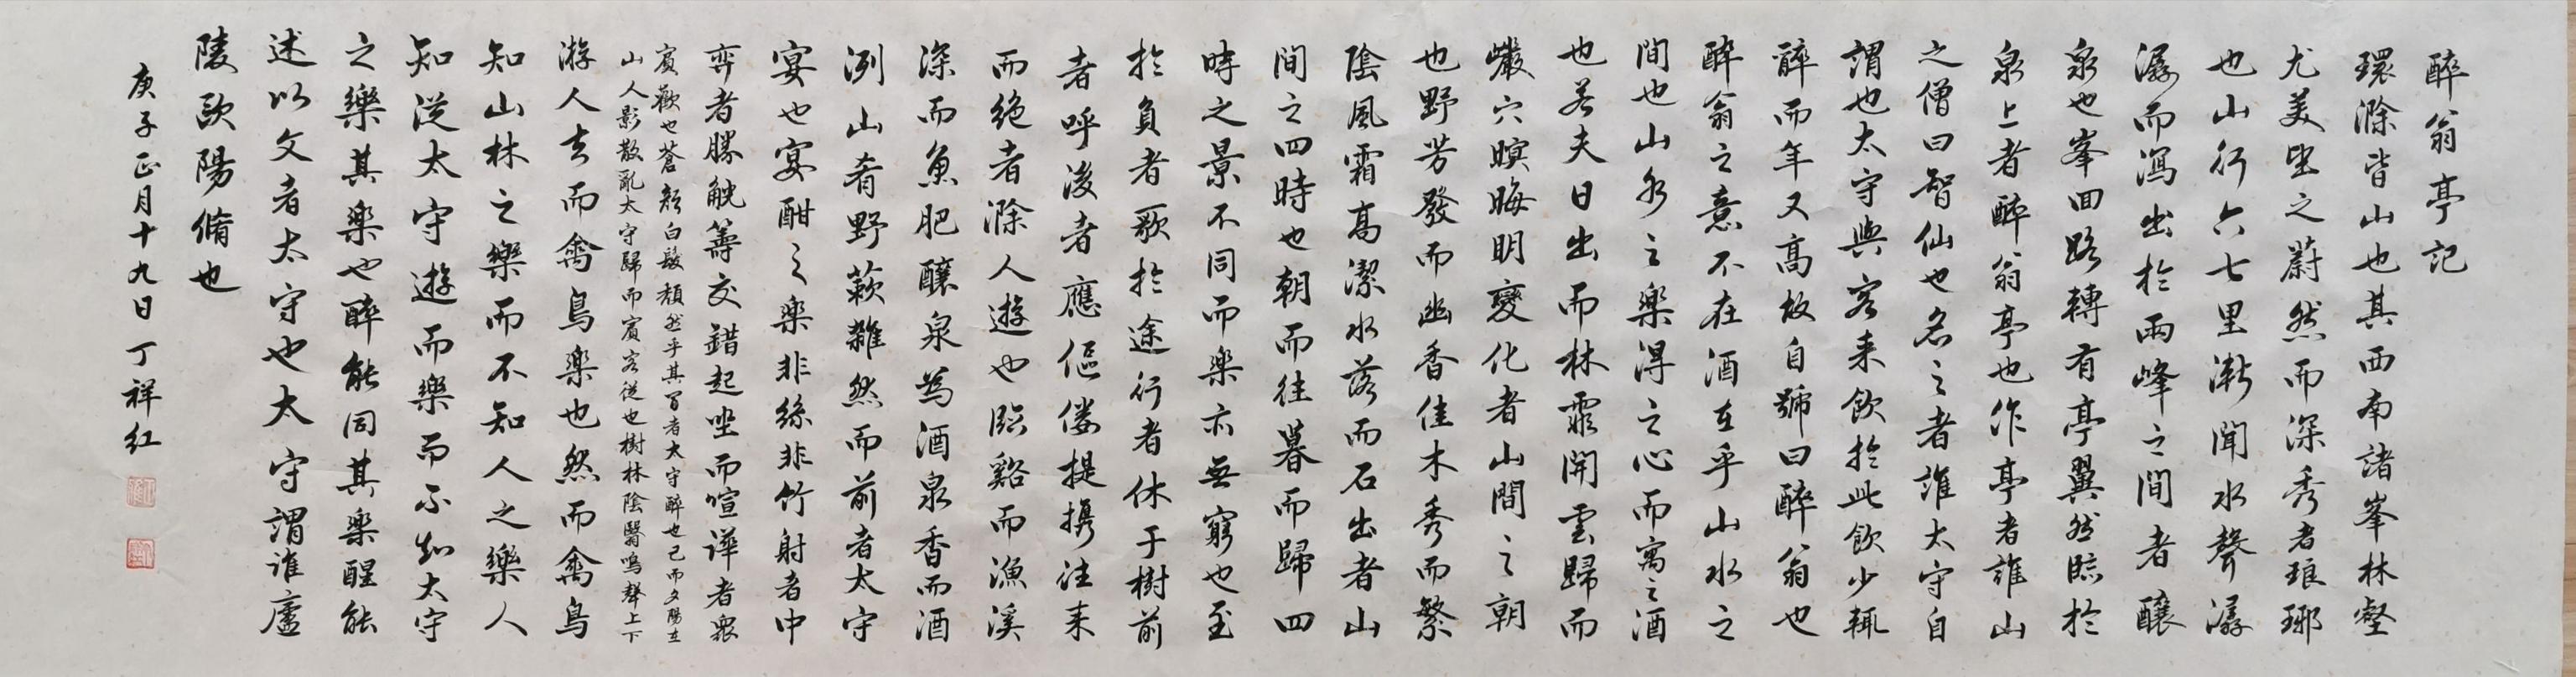 醉翁亭記
環滁皆山也其西南諸峯林壑
尤美望之蔚然而深秀者琅琊
也山行六七里漸聞水聲潺
潺而瀉出於兩峰之間者釀
泉也峯回路轉有亭翼然臨於
泉上者醉翁亭也作亭者誰山
之僧曰智仙也名之者誰太守自
謂也太守與客来飲於此飲少輒
醉而年又高故自號曰醉翁也
醉翁之意不在酒在乎山水之
間也山水之樂得之心而寓之酒
也若夫日出而林霏開雲歸而
巖穴暝晦明變化者山間之朝
也野芳發而幽香佳木秀而繁
陰風霜高潔水落而石出者山
間之四時也朝而往暮而歸四
時之景不同而樂亦無窮也至
於負者歌於途行者休于樹前
者呼後者應傴僂提携往来
而绝者滁人遊也臨谿而漁溪
深而魚肥釀泉為酒泉香而酒
洌山肴野蔌雜然而前者太守
宴也宴酣之樂非絲非竹射者中
弈者勝觥籌交錯起坐而喧譁者衆
賓歡也蒼顏白髮頹然乎其間者太守醉也已而夕陽在
山人影散亂太守歸而賓客從也樹林陰翳鳴聲上下
游人去而禽鳥樂也然而禽鳥
知山林之樂而不知人之樂人
知從太守遊而樂而不知太守
之樂其樂也醉能同其樂醒能
述以文者太守也太守謂誰廬
陵歐陽脩也
庚子正月十九日丁祥红